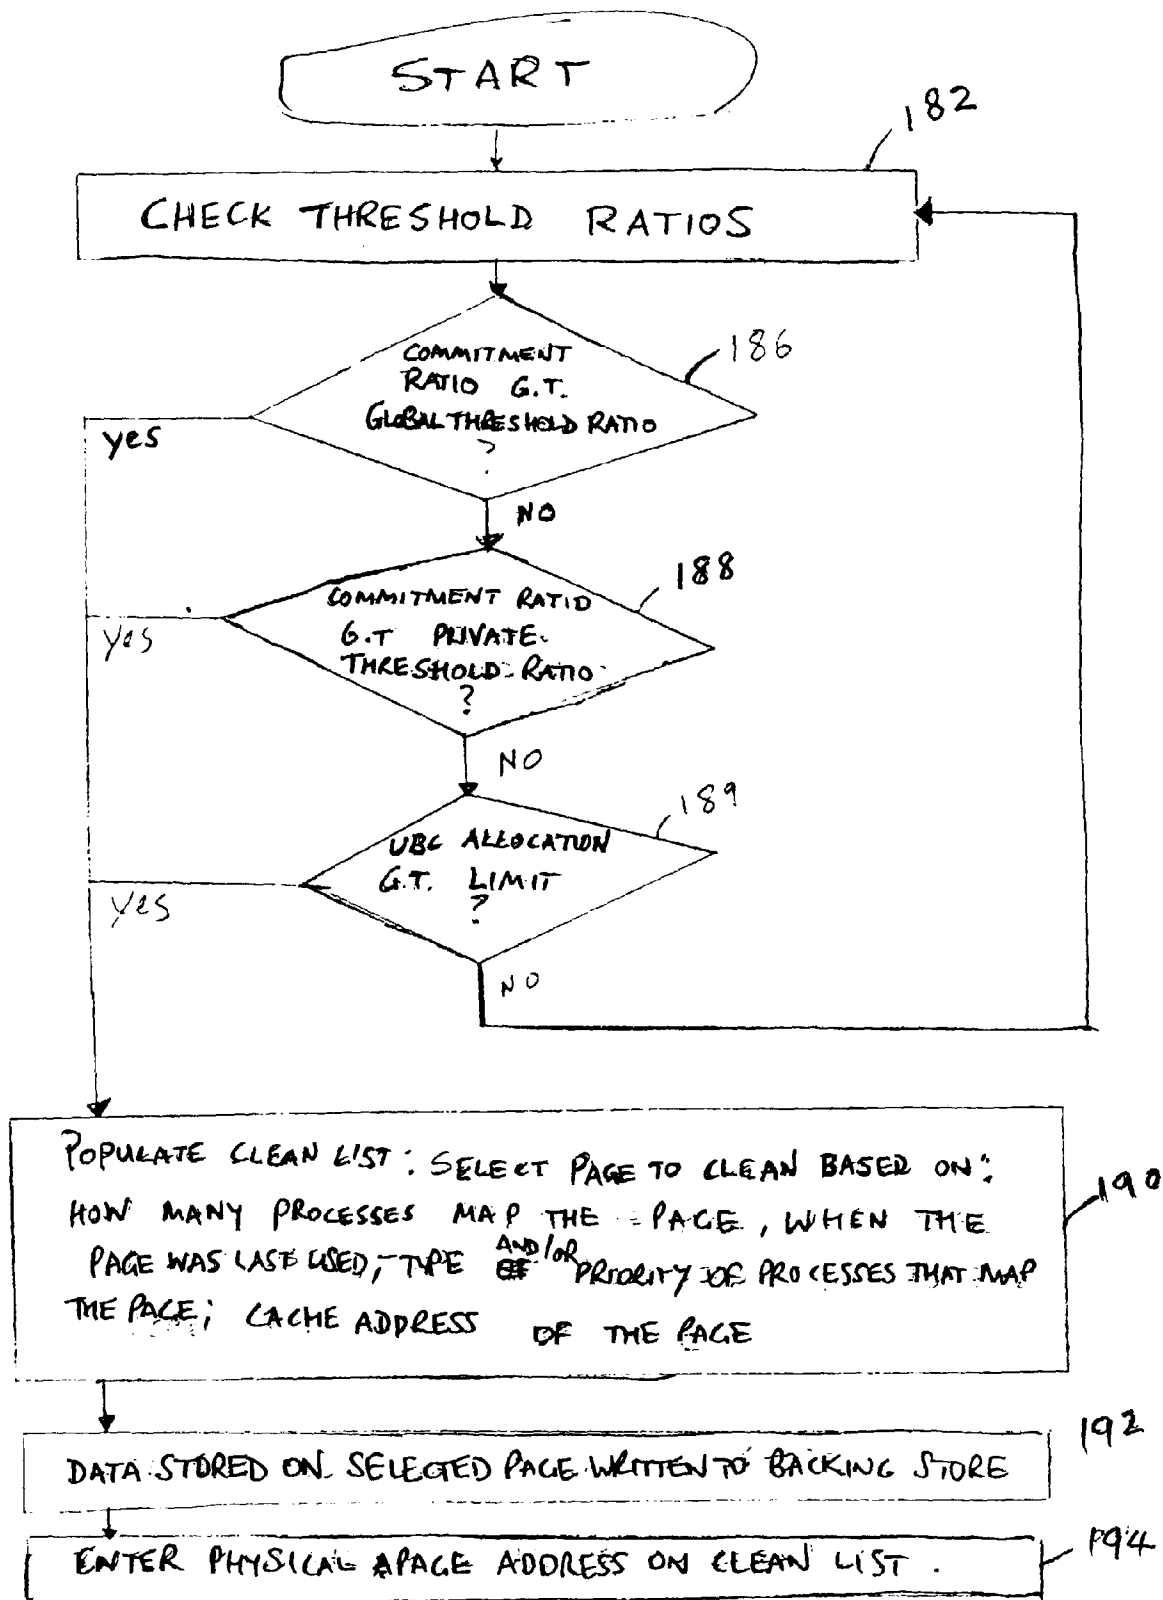 START
182
CHECK THRESHOLD RATIOS
186
COMMITMENT
RATIO G.T.
GLOBAL THRESHOLD RATIO
?
yes
NO
188
COMMITMENT RATIO
G.T PRIVATE
THRESHOLD RATIO
?
yes
NO
189
UBC ALLOCATION
G.T. LIMIT
?
yes
NO
POPULATE CLEAN LIST: SELECT PAGE TO CLEAN BASED ON:
HOW MANY PROCESSES MAP THE PAGE, WHEN THE
PAGE WAS LAST USED, TYPE AND/OR PRIORITY OF PROCESSES THAT MAP
THE PAGE; CACHE ADDRESS OF THE PAGE
190
192
DATA STORED ON SELECTED PAGE WRITTEN TO BACKING STORE
194
ENTER PHYSICAL APAGE ADDRESS ON CLEAN LIST.